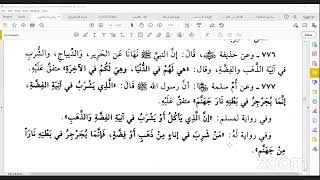 ٧٧٦ - وعن حذيفة ﷺ، قال: إنَّ النبيَّ ﷺ نَهَانَا عَنِ الحَرِيرِ، وَالدِّيبَاجِ، وَالشُّربِ
في آنِيَةِ الذَّهَبِ وَالفِضَّةِ، وقال: «هِيَ لَهُمْ فِي الدُّنْيَا، وهِيَ لَكُمْ فِي الآخِرَةِ» متفقٌ عَلَيْهِ.
٧٧٧ - وعن أُمِّ سلمة ﷺ: أنَّ رسول الله ﷺ قَالَ: «الَّذِي يَشْرَبُ فِي آنِيَةِ الفِضَّةِ،
إِنَّمَا يُجَرْجِرُ فِي بَطْنِهِ نَارَ جَهَنَّمَ» متفقٌ عَلَيْهِ.
وفي رواية لمسلم: «إنَّ الَّذِي يَأكُلُ أَوْ يَشْرَبُ فِي آنِيَةِ الفِضَّةِ وَالذَّهَبِ».
وفي رواية لَهُ: «مَنْ شَرِبَ فِي إناءٍ مِنْ ذَهَبٍ أَوْ فِضَّةٍ، فَإنَّمَا يُجَرْجِرُ فِي بَطْنِهِ نَاراً
مِنْ جَهَنَّم».